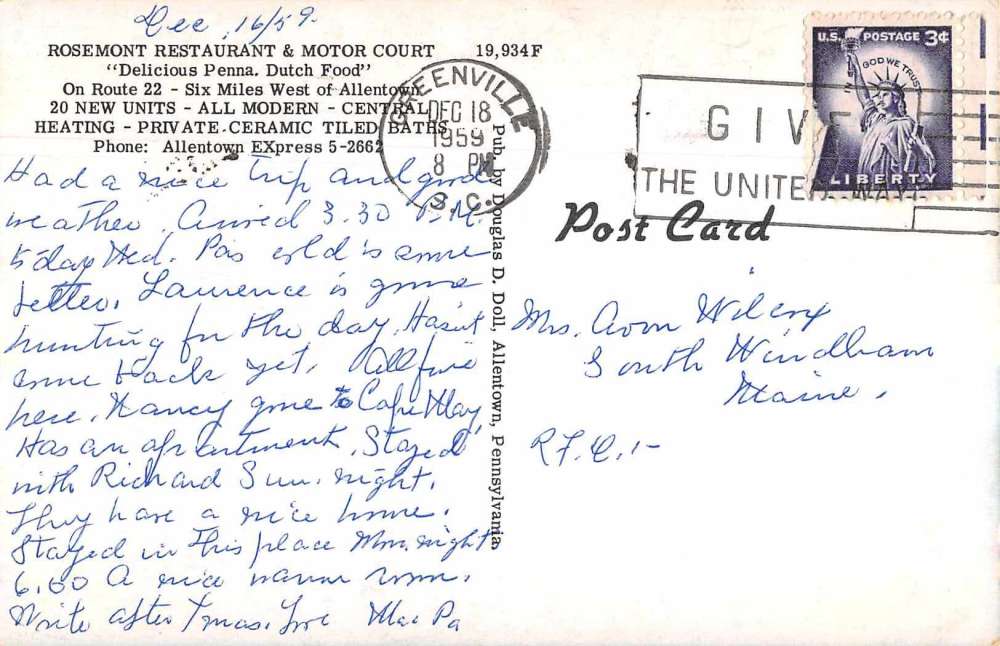 Dec, 16/59.
ROSEMONT RESTAURANT & MOTOR COURT 19,934F
"Delicious Penna. Dutch Food"
On Route 22 - Six Miles West of Allentown
20 NEW UNITS - ALL MODERN - CENTRAL
HEATING - PRIVATE CERAMIC TILED BATHS
Phone: Allentown EXpress 5-2662
Had a nice trip and good
weather. Arrived 3.30 P.M.
today Wed. Pa's cold is some
better. Laurence is gone
hunting for the day. Hasn't
come back yet. All fine
here. Nancy gone to Cape May,
Has an apartment. Stayed
with Richard Sun. night.
They have a nice home.
Stayed in this place Mon. night
6.00 A nice warm room.
Write after Xmas. Love Ma & Pa
Pub. by Douglas D. Doll, Allentown, Pennsylvania.
GREENVILLE
DEC 18
1959
8 PM
S.C.
GIVE
THE UNITED WAY
U.S. POSTAGE 3¢
IN GOD WE TRUST
LIBERTY
Post Card
Mrs. Avon Wilcox
South Windham
Maine.
R.F.D. 1-